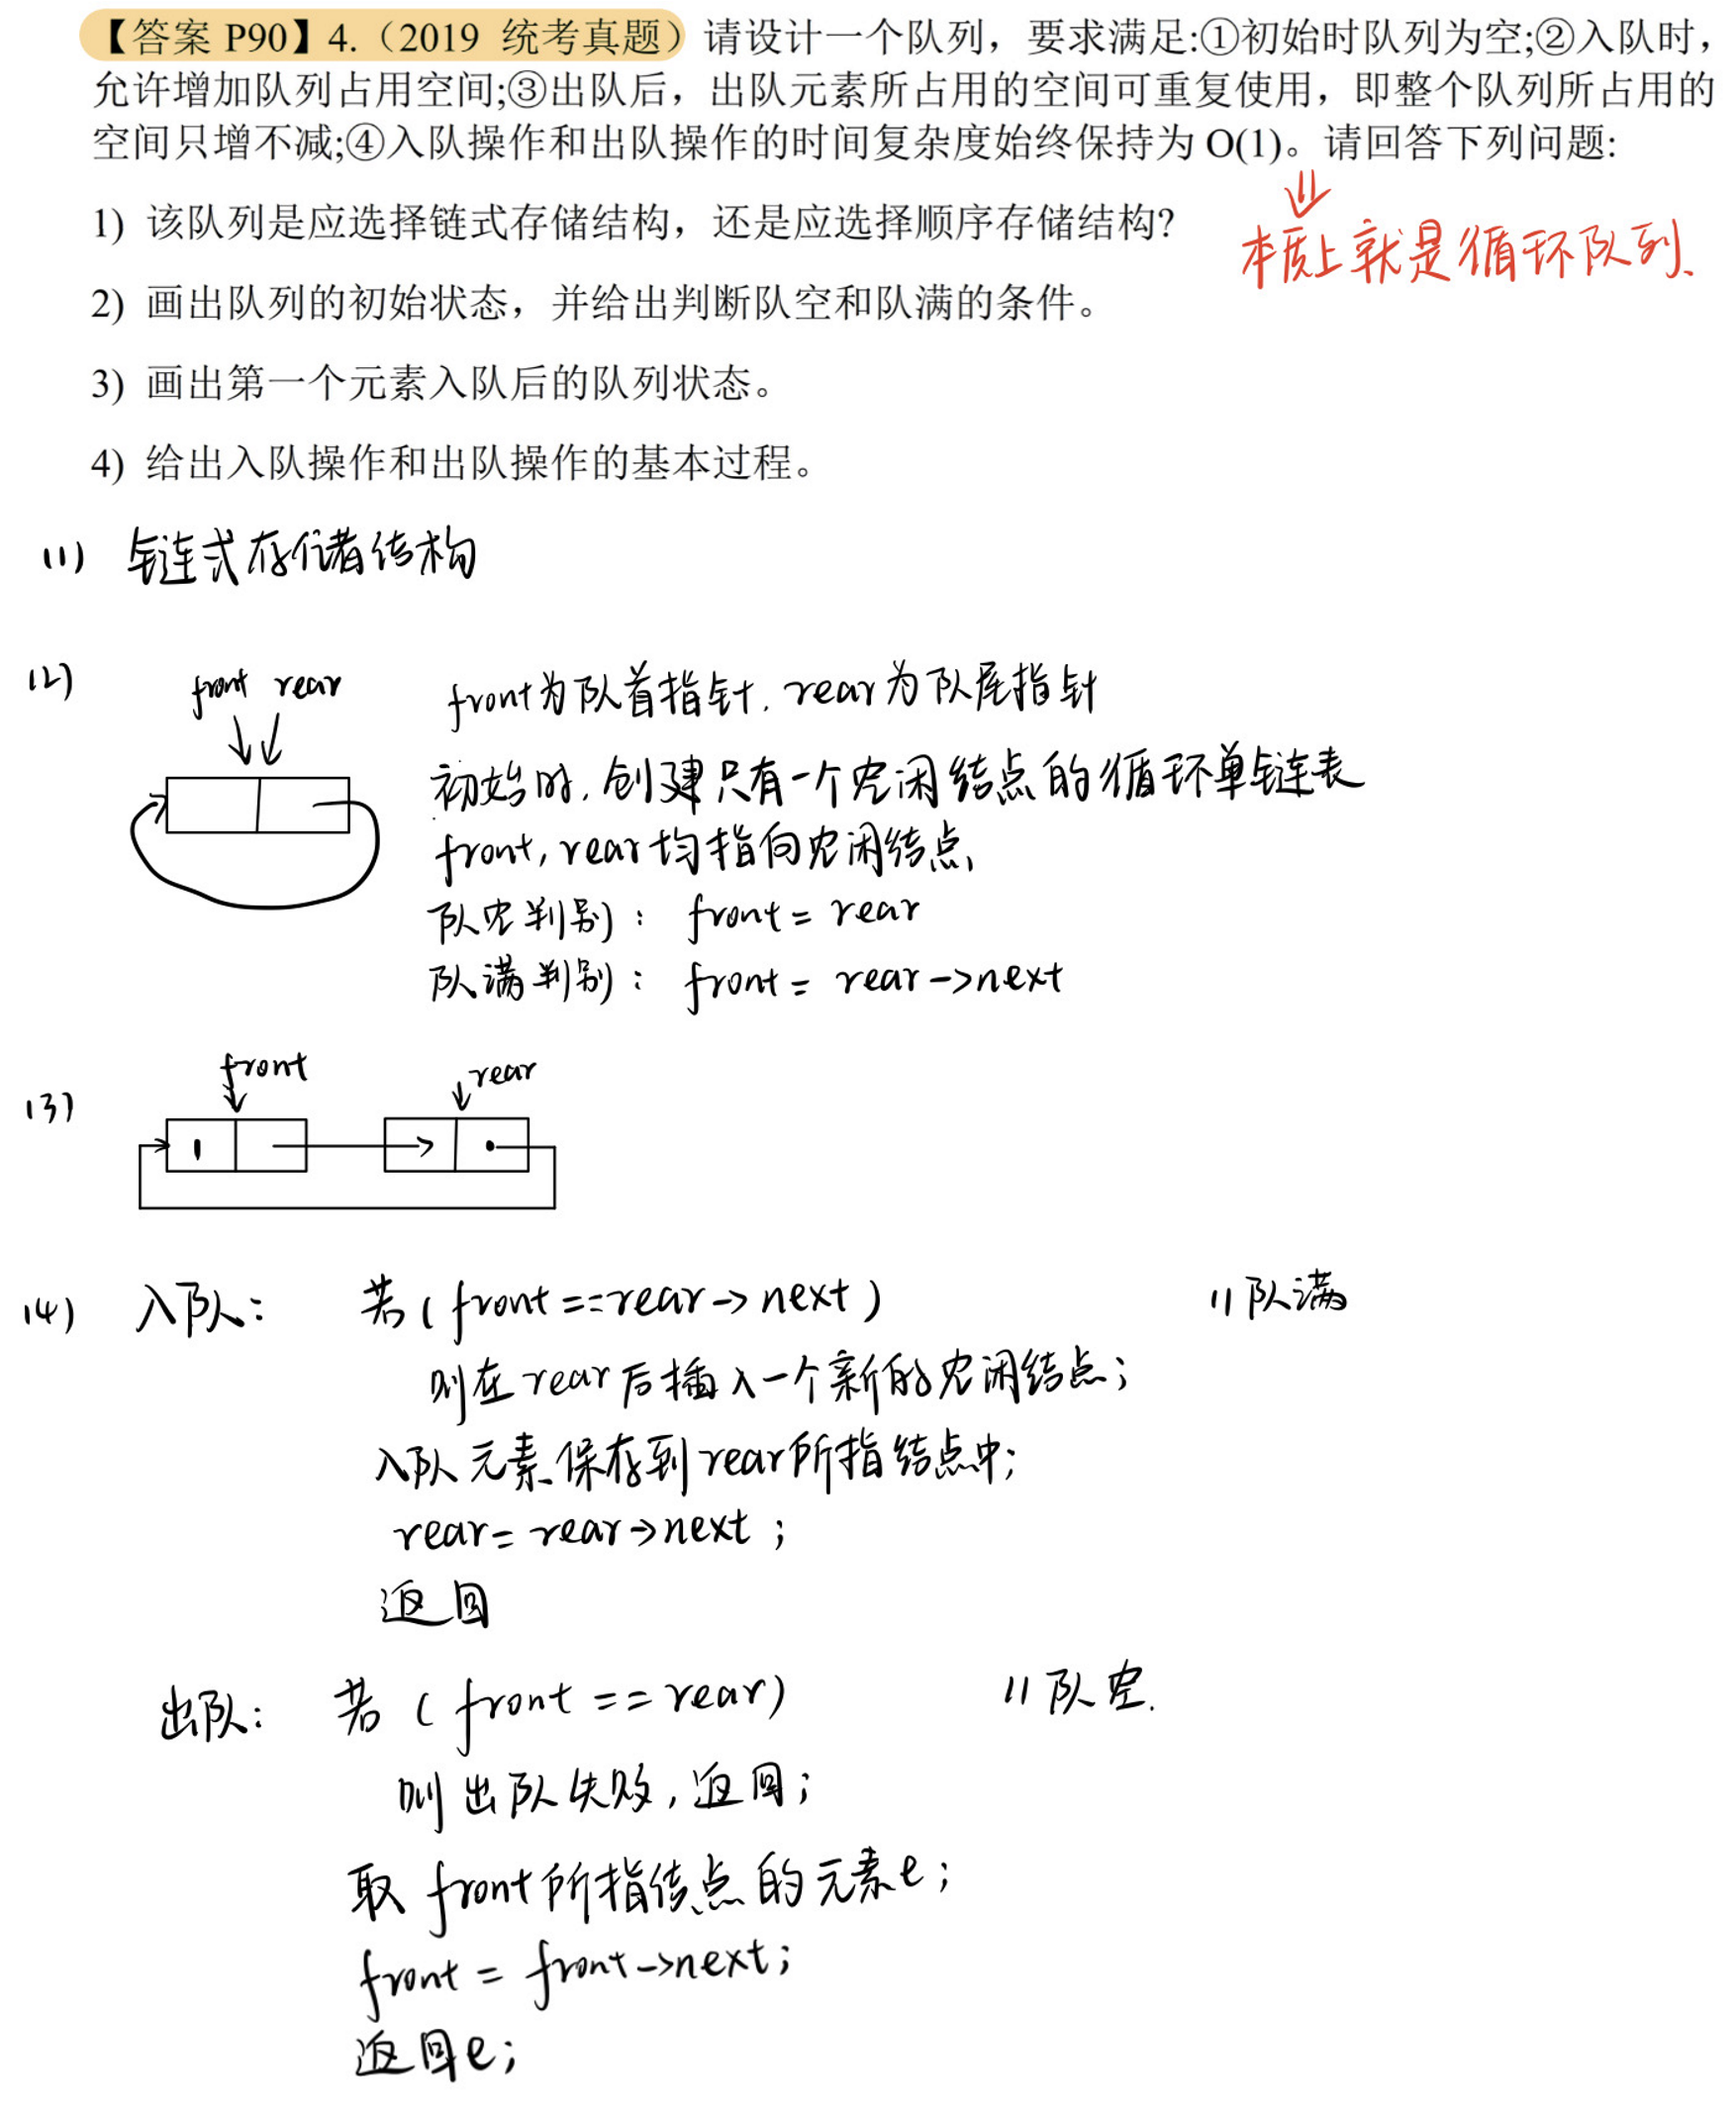 【答案 P90】4.（2019 统考真题）请设计一个队列，要求满足:①初始时队列为空;②入队时，
允许增加队列占用空间;③出队后，出队元素所占用的空间可重复使用，即整个队列所占用的
空间只增不减;④入队操作和出队操作的时间复杂度始终保持为 O(1)。请回答下列问题:
1) 该队列是应选择链式存储结构，还是应选择顺序存储结构?
本质上就是循环队列.
2) 画出队列的初始状态，并给出判断队空和队满的条件。
3) 画出第一个元素入队后的队列状态。
4) 给出入队操作和出队操作的基本过程。
(1) 链式存储结构
(2)
front rear
front为队首指针. rear为队尾指针
初始时, 创建只有一个空闲结点的循环单链表
front, rear均指向空闲结点,
队空判别: front = rear
队满判别: front = rear->next
(3)
front
rear
1
(4) 入队: 若(front == rear->next) //队满
则在rear后插入一个新的空闲结点;
入队元素保存到rear所指结点中;
rear = rear->next;
返回
出队: 若(front == rear) //队空.
则出队失败, 返回;
取front所指结点的元素e;
front = front->next;
返回e;